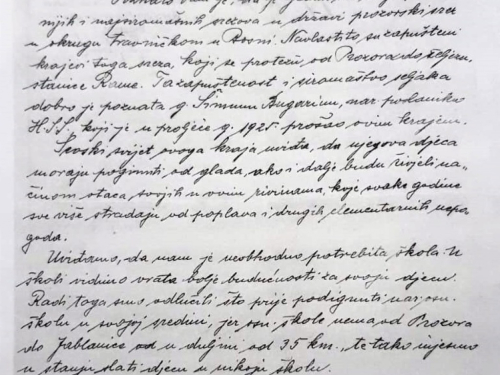 njih i najsiromašnih srezova u državi prozorski srez
u okrugu travničkom u Bosni. Navlastito su zapušteni
krajevi toga sreza, koji se protežu od Prozora do željezn.
stanice Rame. Ta zapuštenost i siromaštvo seljaka
dobro je poznata g. Šimunu Bugarinu, nar. poslaniku
H.S.S. koji je u proljeće g. 1925. prošao ovim krajem.
Seoski svijet ovoga kraja uvidja, da njegova djeca
moraju poginuti od glada, ako i dalje budu živjeli na-
činom otaca svojih u ovim živinama, koje svake godine
sve više stradaju od poplava i drugih elementarnih nepo-
goda.
Uvidjamo, da nam je neobhodno potrebita škola. U
školi vidimo vrata bolje budućnosti za svoju djecu.
Radi toga smo odlučili što prije podignuti nar. osn.
školu u svojoj sredini, jer osn. škole nema od Prozora
do Jablanice od u duljini od 35 km., te tako nijesmo
u stanju slati djecu u nikoju školu.